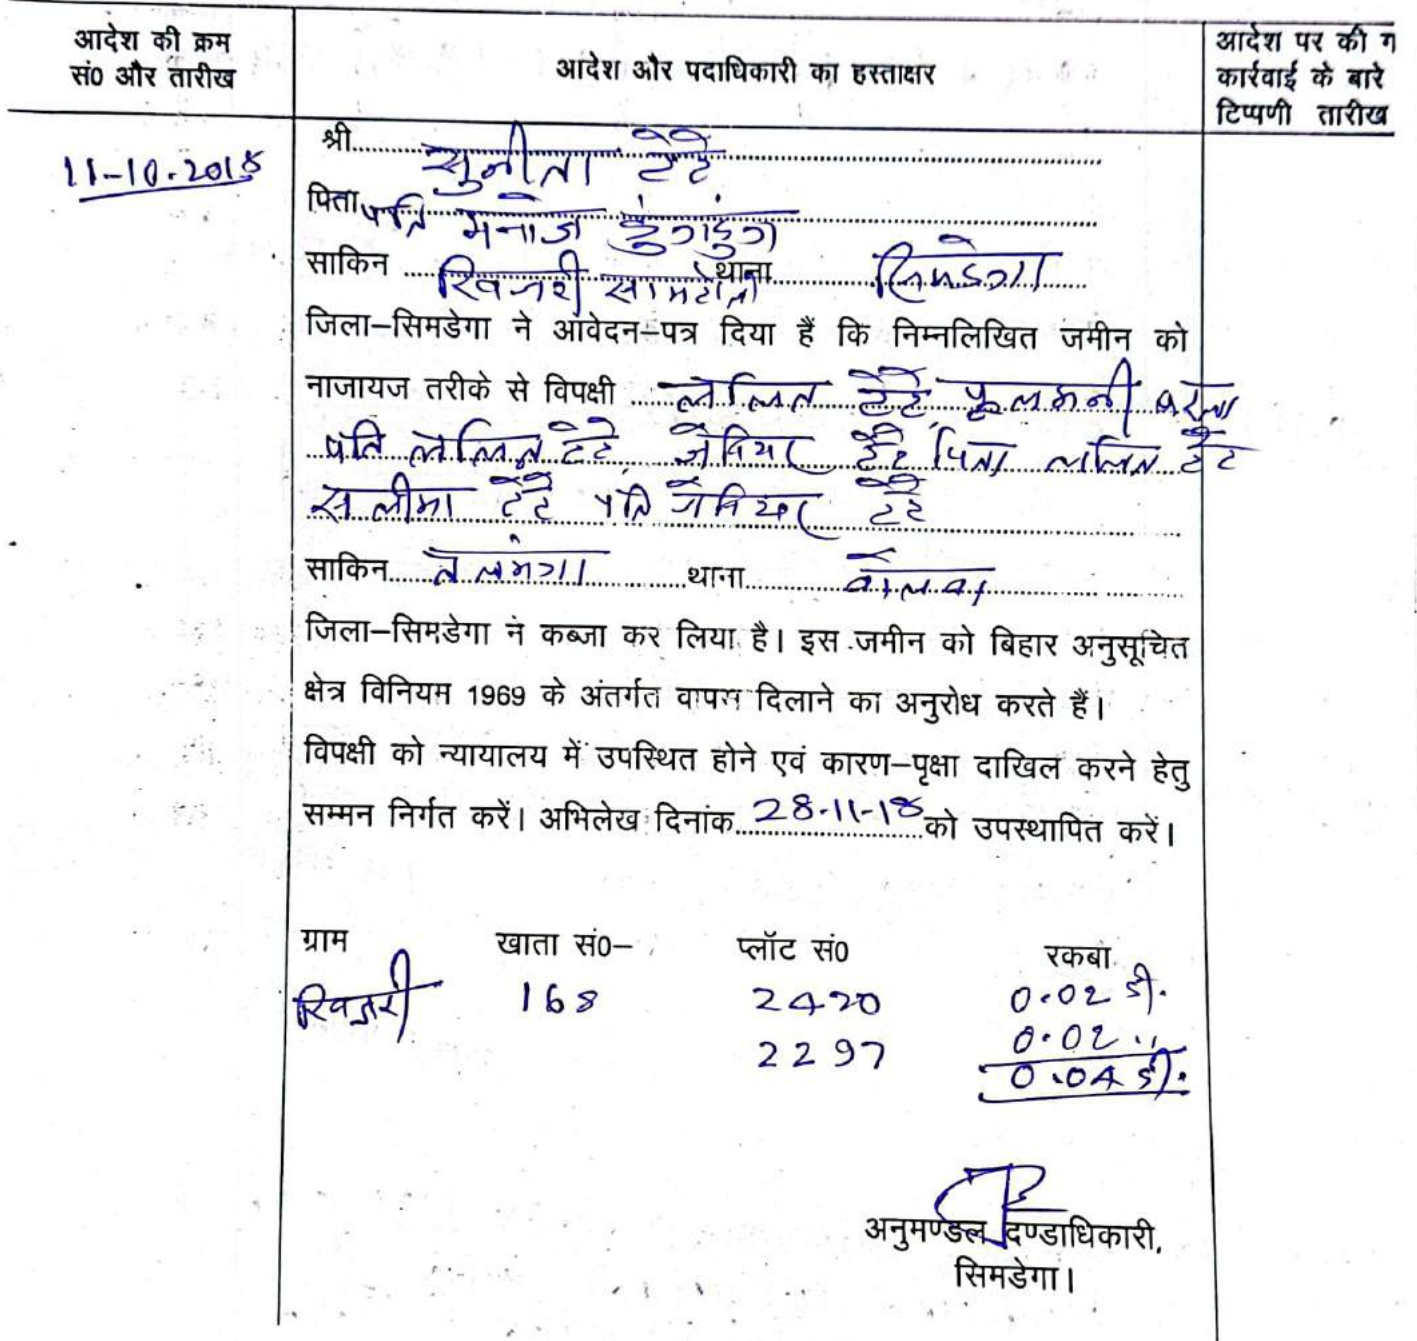 आदेश की क्रम
सं0 और तारीख
आदेश और पदाधिकारी का हस्ताक्षर
आदेश पर की ग
कार्रवाई के बारे
टिप्पणी तारीख
11-10-2018
श्री सुनीता टेटे
पिता पति मनोज डुंगडुंग
साकिन थाना सिमडेगा
जिला–सिमडेगा ने आवेदन–पत्र दिया हैं कि निम्नलिखित जमीन को
नाजायज तरीके से विपक्षी ललित टेटे, फूलमनी
पति ललित टेटे, जेवियर टेटे पिता ललित टेटे
सलीमा टेटे पति जेवियर टेटे
साकिन थाना बोलबा
जिला–सिमडेगा ने कब्जा कर लिया है। इस जमीन को बिहार अनुसूचित
क्षेत्र विनियम 1969 के अंतर्गत वापस दिलाने का अनुरोध करते हैं।
विपक्षी को न्यायालय में उपस्थित होने एवं कारण–पृक्षा दाखिल करने हेतु
सम्मन निर्गत करें। अभिलेख दिनांक 28-11-18 को उपस्थापित करें।
ग्राम खाता सं0– प्लॉट सं0 रकबा
168 2420 0.02 डी.
2297 0.02 "
0.04 डी.
अनुमण्डल दण्डाधिकारी,
सिमडेगा।